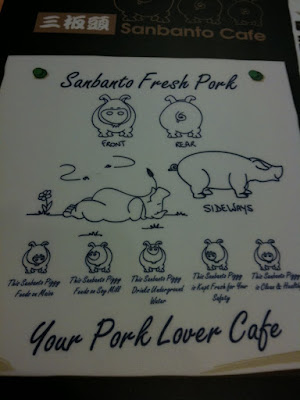 三板頭 Sanbanto Cafe
Sanbanto Fresh Pork
FRONT REAR
SIDEWAYS
This Sanbanto Piggy Feeds on Maize
This Sanbanto Piggy Feeds on Soy Mill
This Sanbanto Piggy Drinks Underground Water
This Sanbanto Piggy is Kept Fresh for Your Safety
This Sanbanto Piggy is Clean & Health
Your Pork Lover Cafe